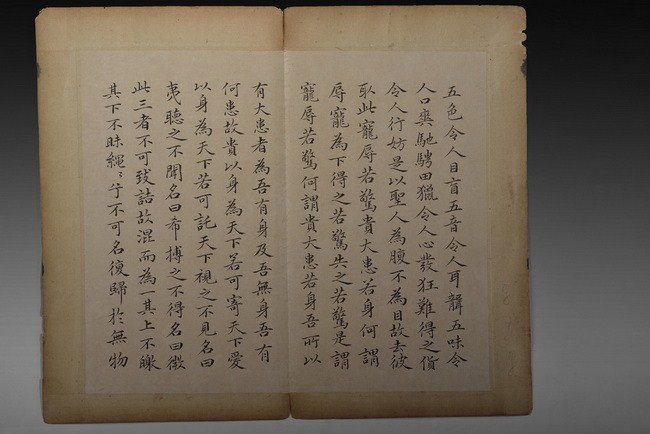 五色令人目盲五音令人耳聾五味令
人口爽馳騁田獵令人心發狂難得之貨
令人行妨是以聖人為腹不為目故去彼
取此寵辱若驚貴大患若身何謂
辱寵為下得之若驚失之若驚是謂
寵辱若驚何謂貴大患若身吾所以
有大患者為吾有身及吾無身吾有
何患故貴以身為天下若可寄天下愛
以身為天下若可託天下視之不見名曰
夷聽之不聞名曰希搏之不得名曰微
此三者不可致詰故混而為一其上不皦
其下不昧繩〻兮不可名復歸於無物